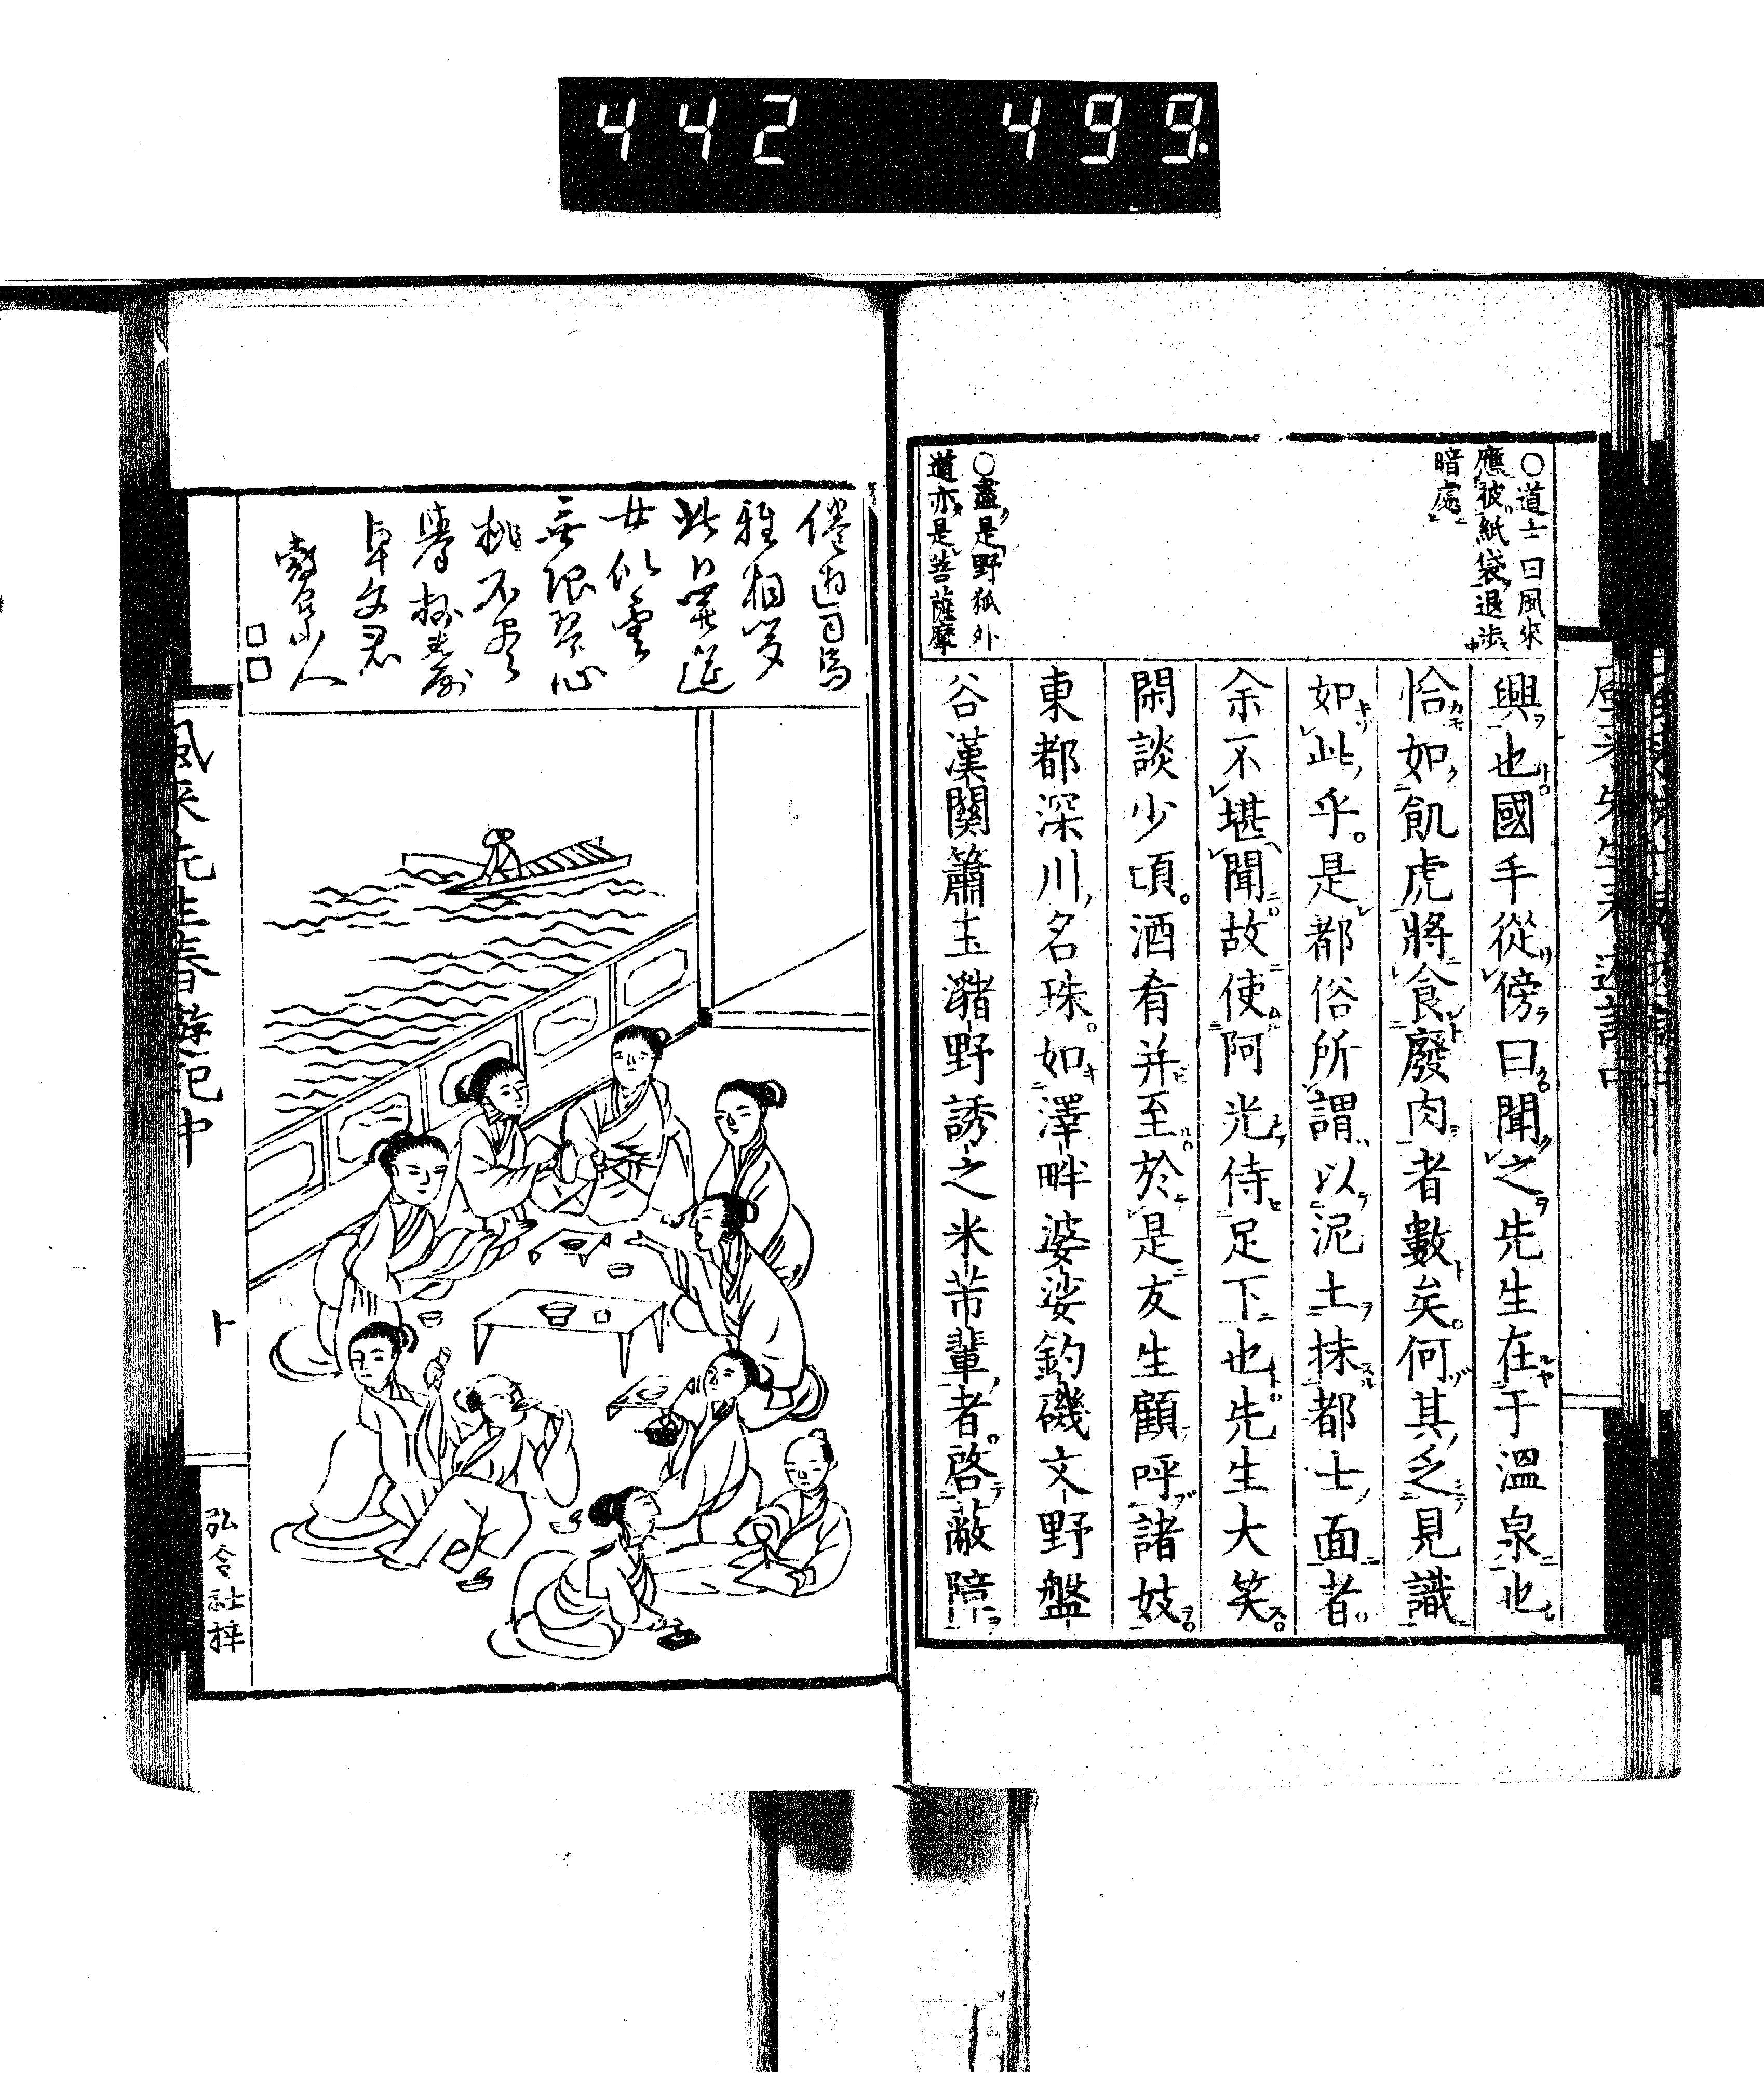 442 499
○道士曰風來
應彼紙袋退步
暗處
○盡是野狐外
道亦是菩薩摩
興也國手從傍曰聞之先生在于溫泉也
恰如飢虎將食廢肉者數矣何其乏見識
如此乎。是都俗所謂以泥土抹都士面者
余不堪聞故使阿光侍足下也先生大笑
閑談少頃。酒肴并至於是友生顧呼諸妓
東都深川名珠。如澤畔婆娑釣磯文野盤
谷漢關簫玉瀦野誘之米芾輩者。啓蔽障
倦遊司馬
雅相
女似雲
無限琴心
挑不
卓文君
風來先生春遊記中
弘令社梓